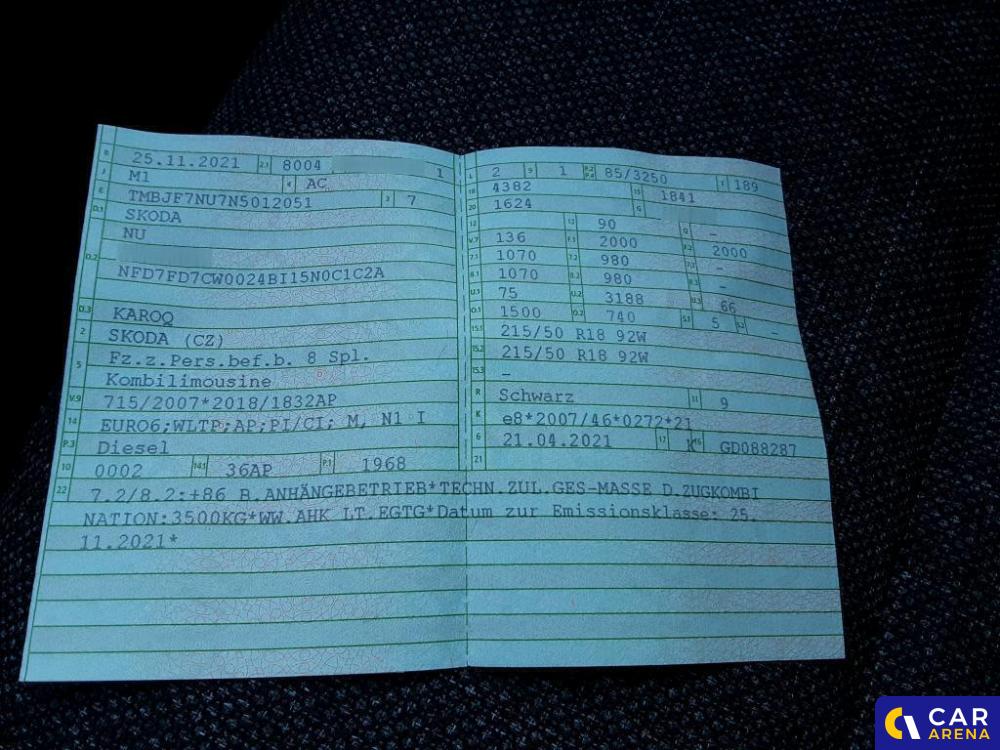 B 25.11.2021 2.1 8004 1
J M1 4 AC
E TMBJF7NU7N5012051 3 7
D.1 SKODA
NU
D.2
NFD7FD7CW0024BI15N0C1C2A
D.3 KAROQ
2 SKODA (CZ)
5 Fz.z.Pers.bef.b. 8 Spl.
Kombilimousine
V.9 715/2007*2018/1832AP
14 EURO6;WLTP;AP;PI/CI; M, N1 I
P.3 Diesel
10 0002 14.1 36AP P.1 1968
L 2 9 1 P.2 P.4 85/3250 T 189
18 4382 19 1841
20 1624 G
12 13 90 Q –
V.7 136 F.1 2000 F.2 2000
7.1 1070 7.2 980 7.3 –
8.1 1070 8.2 980 8.3 –
U.1 75 U.2 3188 U.3 66
O.1 1500 O.2 740 S.1 5 S.2 –
15.1 215/50 R18 92W
15.2 215/50 R18 92W
15.3 –
R Schwarz 11 9
K e8*2007/46*0272*21
6 21.04.2021 17 K 16 GD088287
21
22 7.2/8.2:+86 B.ANHÄNGEBETRIEB*TECHN.ZUL.GES-MASSE D.ZUGKOMBI
NATION:3500KG*WW.AHK LT.EGTG*Datum zur Emissionsklasse: 25.
11.2021*
CAR
ARENA